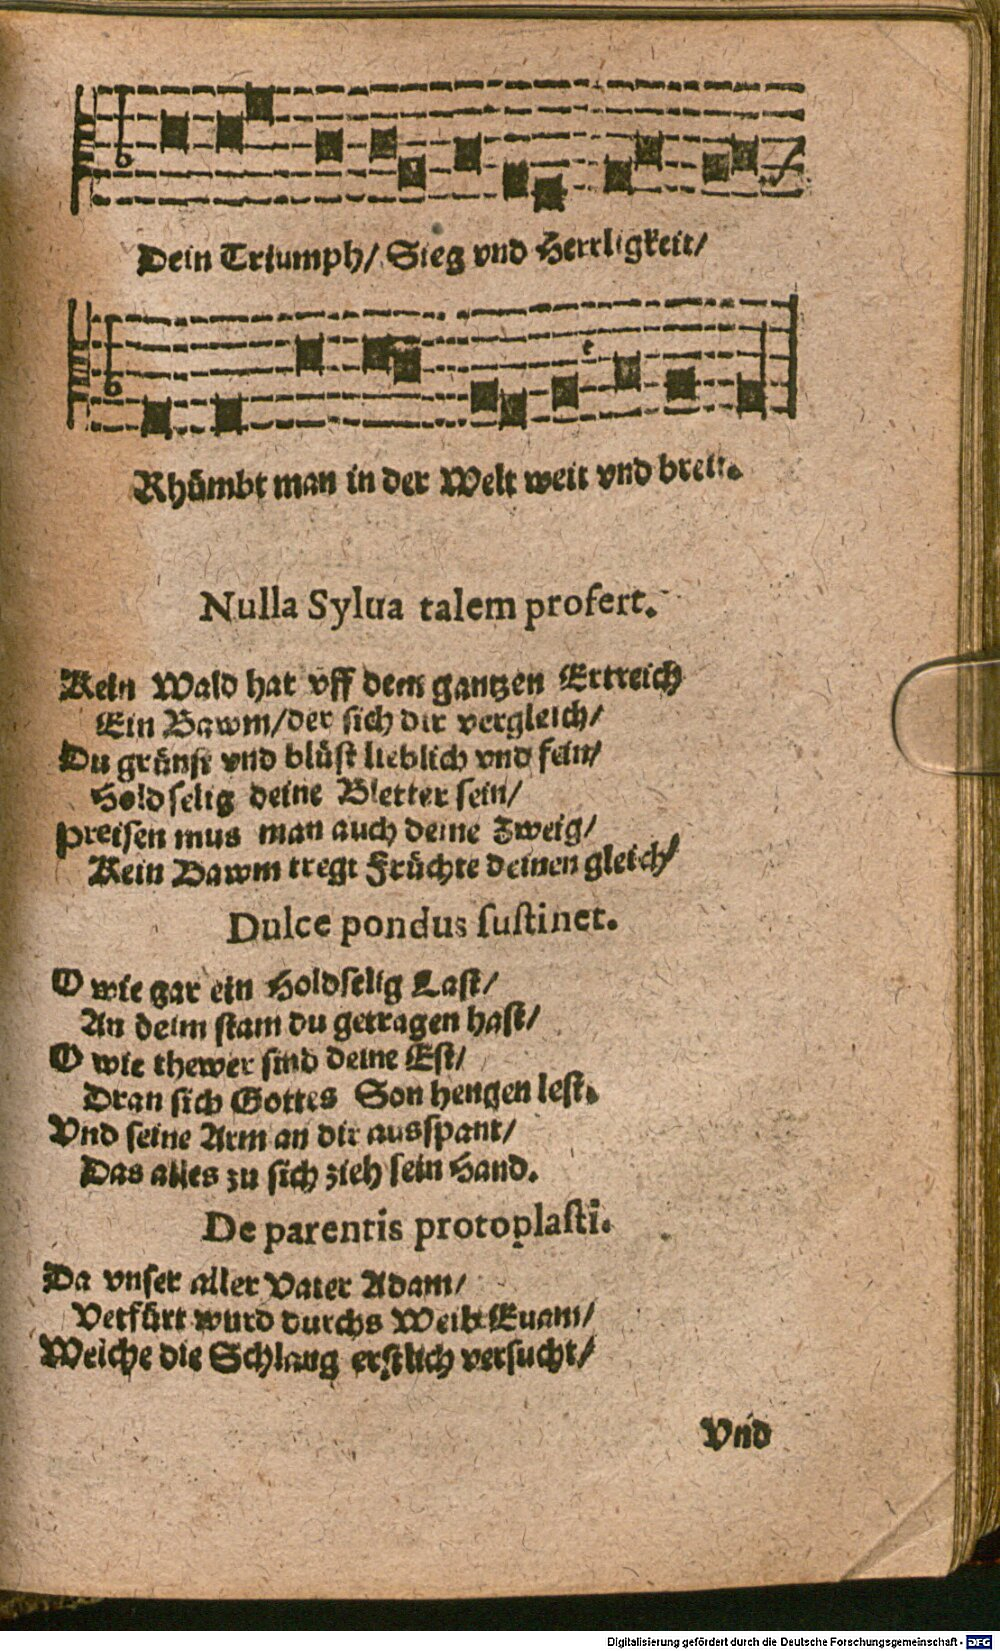 Dein Triumph/ Sieg vnd Herrligkeit/
Rhümbt man in der Welt weit vnd breit.
Nulla Sylua talem profert.
Kein Wald hat vff dem gantzen Ertreich
Ein Bawm/der sich dir vergleich/
Du grünst vnd blüst lieblich vnd fein/
Holdselig deine Bletter sein/
Preisen mus man auch deine Zweig/
Kein Bawm tregt Früchte deinen gleich/
Dulce pondus ſuſtinet.
O wie gar ein Holdselig Last/
An deim stam du getragen hast/
O wie thewer sind deine Est/
Dran sich Gottes Son hengen lest.
Vnd seine Arm an dir ausspant/
Das alles zu sich zieh sein Hand.
De parentis protoplaſti.
Da vnser aller Vater Adam/
Verfürt wurd durchs Weib Euam/
Welche die Schlang erstlich versucht/
Vnd
Digitalisierung gefördert durch die Deutsche Forschungsgemeinschaft - DFG